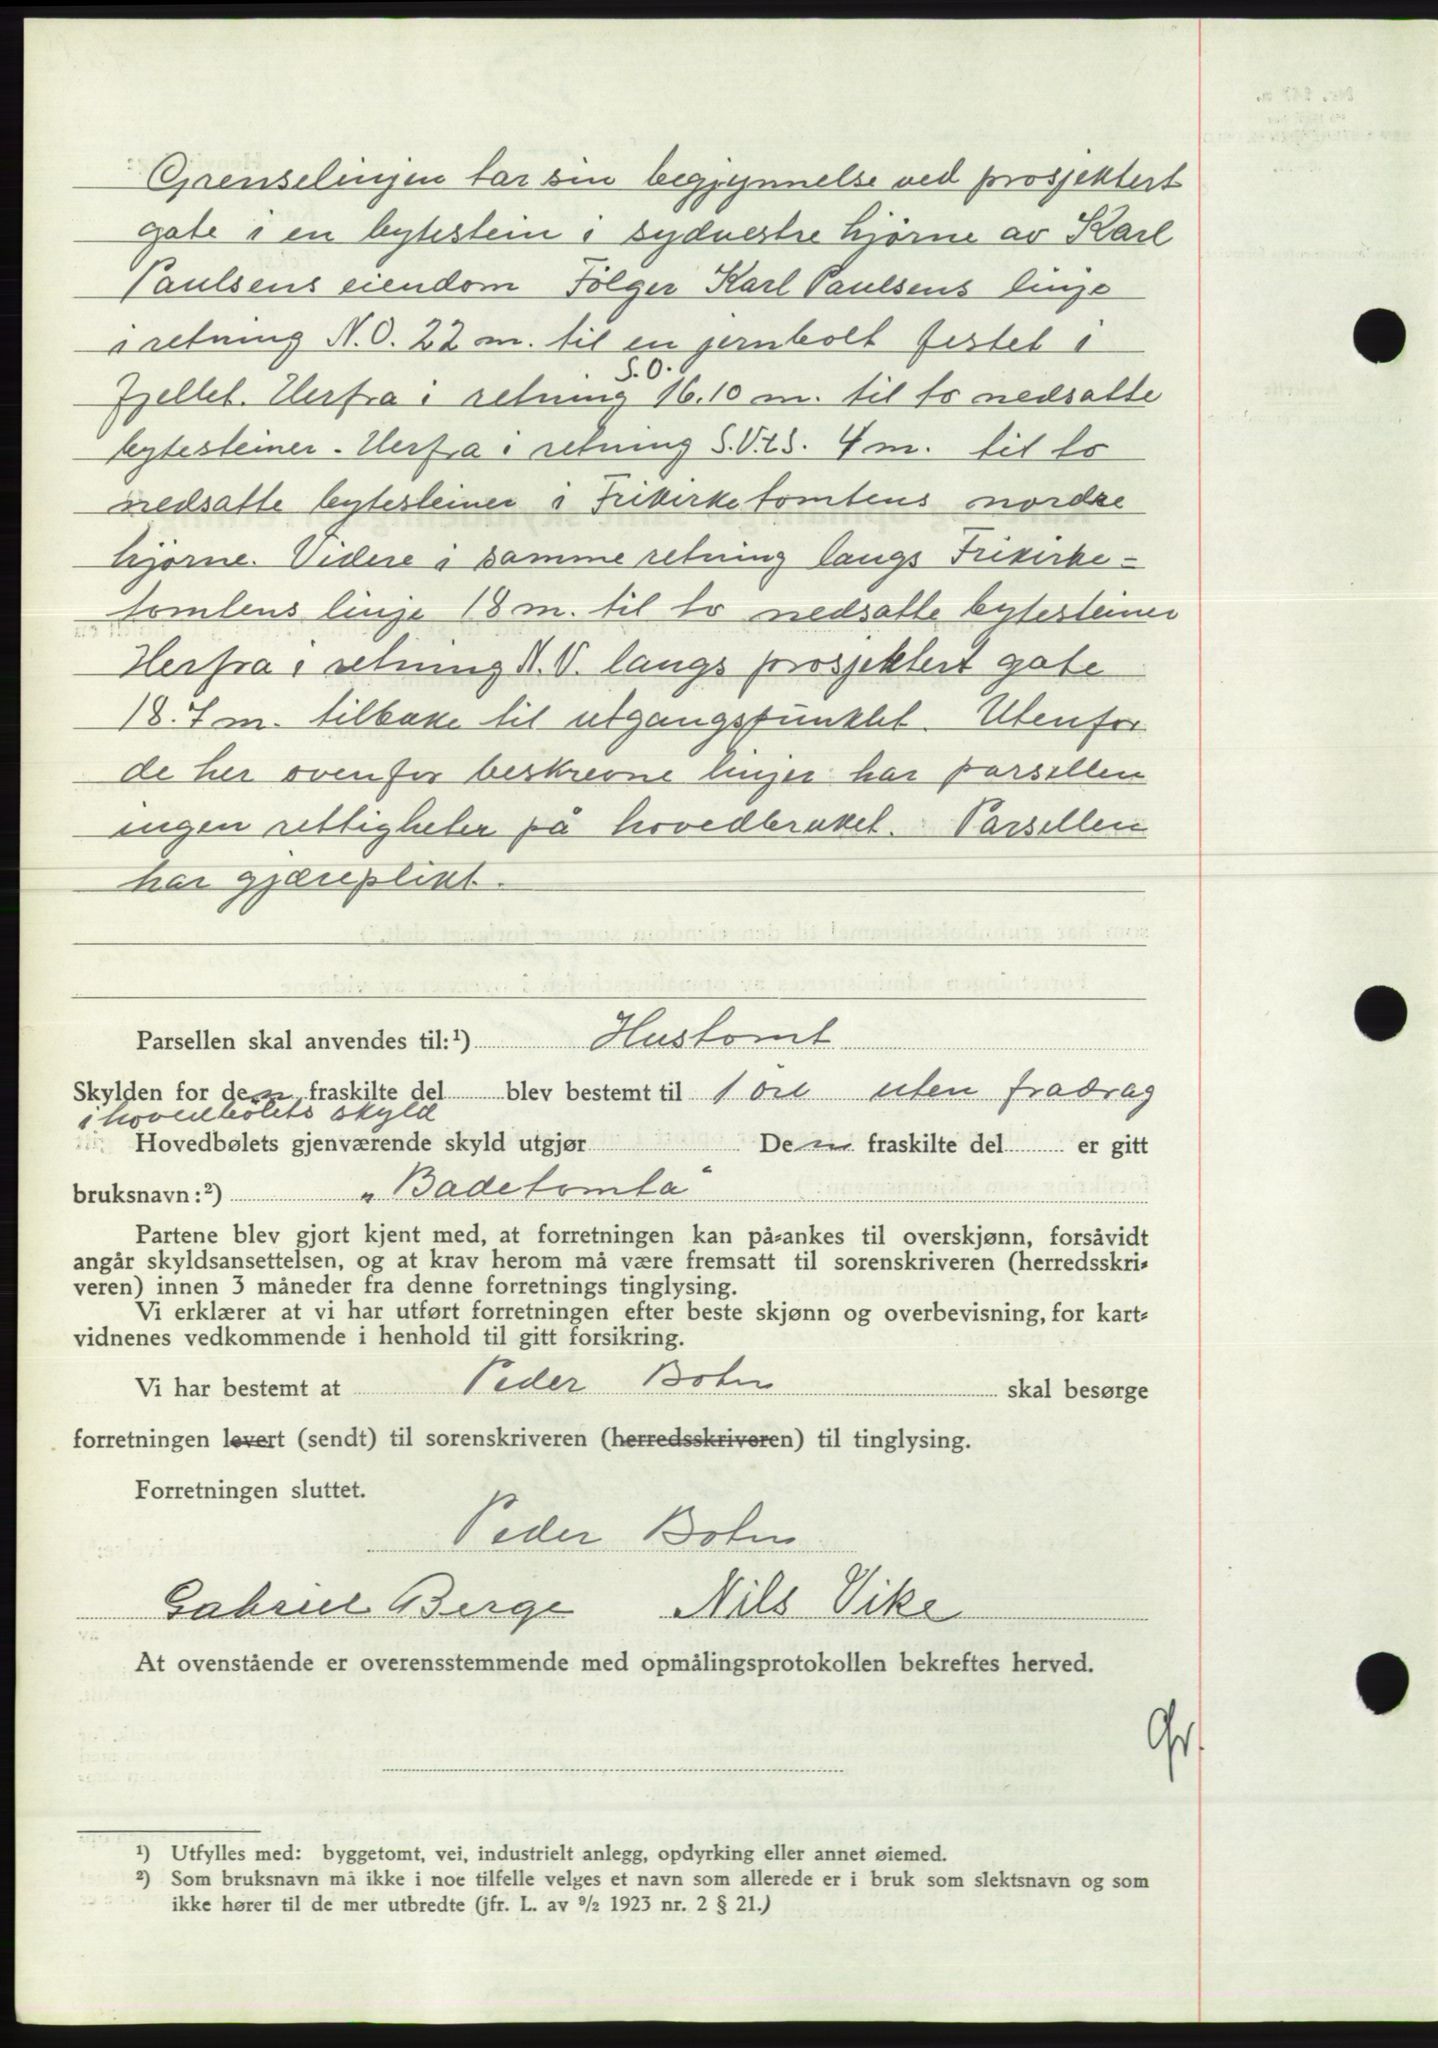 Grenselinjen tar sin begynnelse ved prosjektert
gate i en bytestein i sydvestre hjørne av Karl
Paulsens eiendom Følger Karl Paulsens linje
i retning N.O. 22 m. til en jernbolt festet i
S.O.
fjellet. Herfra i retning 16.10 m. til to nedsatte
bytesteiner. Herfra i retning S.V.t.S. 4 m. til to
nedsatte bytesteiner i Frikirketomtens nordre
hjørne. Videre i samme retning langs Frikirke=
tomtens linje 18 m. til to nedsatte bytesteiner
Herfra i retning N.V. langs prosjektert gate
18.7 m. tilbake til utgangspunktet. Utenfor
de her ovenfor beskrevne linjer har parsellen
ingen rettigheter på hovedbruket. Parsellen
har gjæreplikt.
Parsellen skal anvendes til:¹) Hustomt
Skylden for den fraskilte del blev bestemt til 1 øre uten fradrag
i hovedbølets skyld
Hovedbølets gjenværende skyld utgjør De n fraskilte del er gitt
bruksnavn:²) „Badetomta"
Partene blev gjort kjent med, at forretningen kan på-ankes til overskjønn, forsåvidt
angår skyldsansettelsen, og at krav herom må være fremsatt til sorenskriveren (herredsskri-
veren) innen 3 måneder fra denne forretnings tinglysing.
Vi erklærer at vi har utført forretningen efter beste skjønn og overbevisning, for kart-
vidnenes vedkommende i henhold til gitt forsikring.
Vi har bestemt at Peder Bohn skal besørge
forretningen levert (sendt) til sorenskriveren (herredsskriveren) til tinglysing.
Forretningen sluttet.
Peder Bohn
Gabriel Berge Nils Vike
At ovenstående er overensstemmende med opmålingsprotokollen bekreftes herved.
¹) Utfylles med: byggetomt, vei, industrielt anlegg, opdyrking eller annet øiemed.
²) Som bruksnavn må ikke i noe tilfelle velges et navn som allerede er i bruk som slektsnavn og som
ikke hører til de mer utbredte (jfr. L. av 9/2 1923 nr. 2 § 21.)